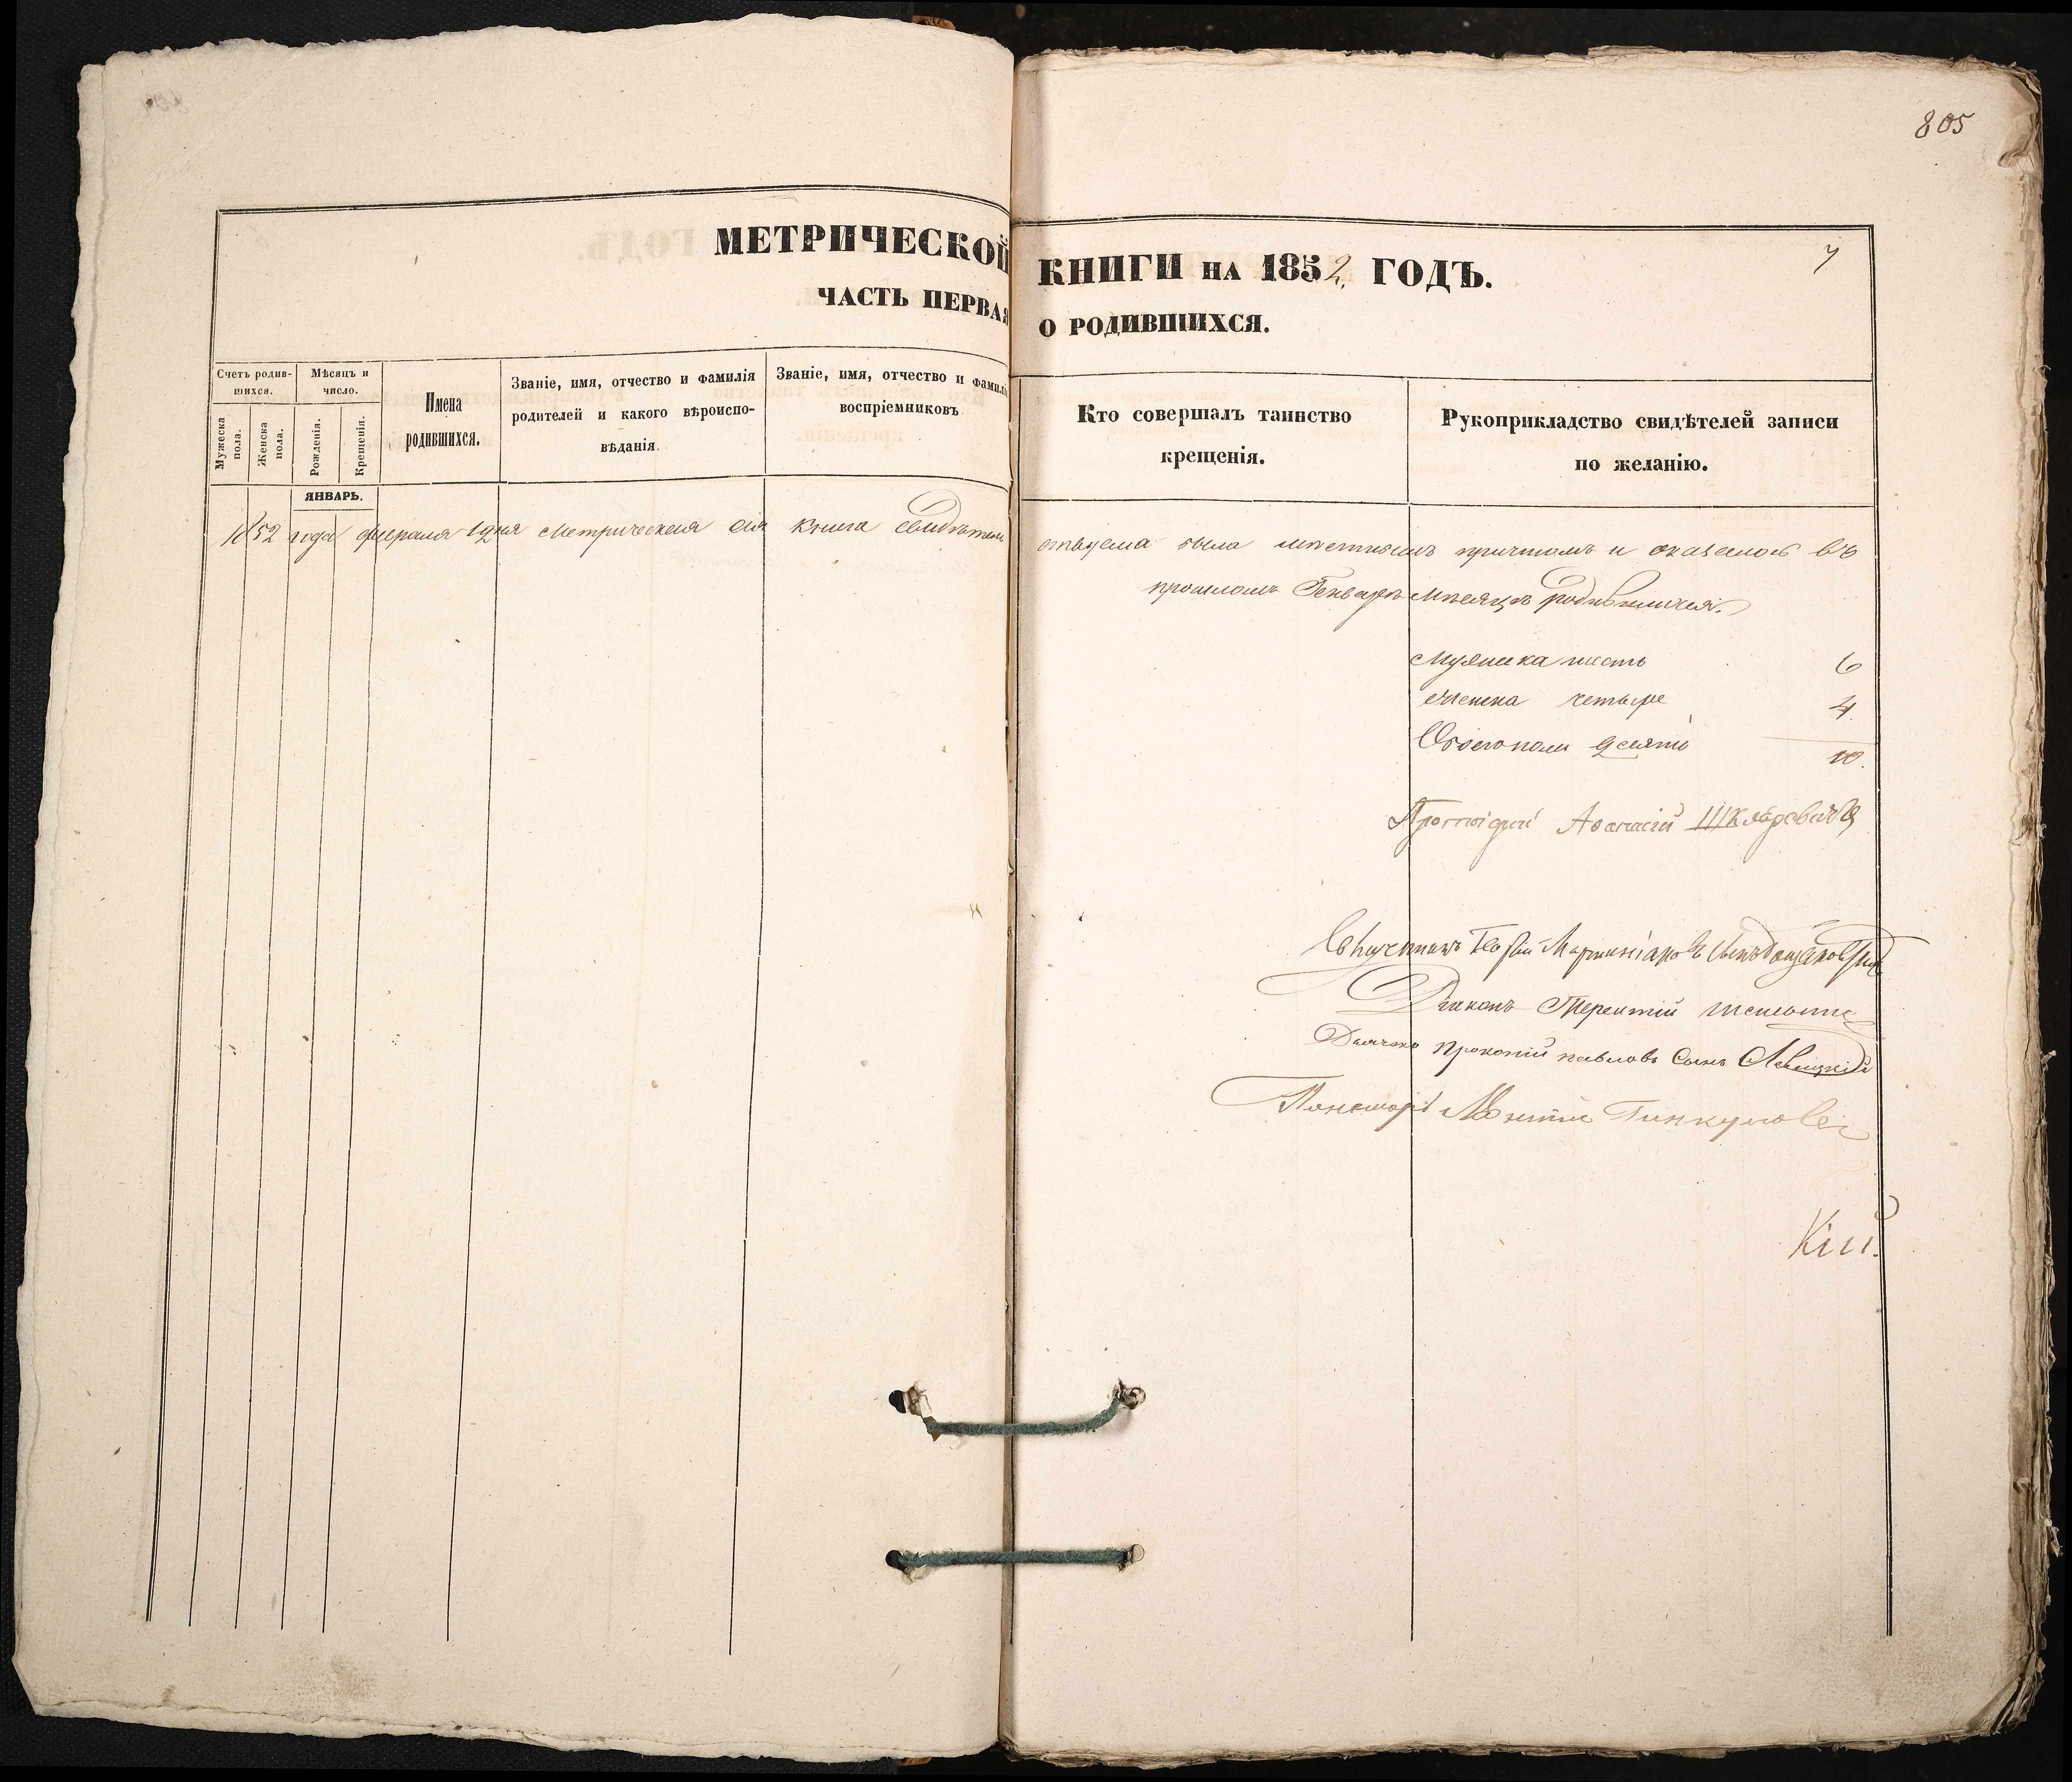 805
МЕТРИЧЕСКОЙ КНИГИ НА 1852 ГОДЪ.
7
ЧАСТЬ ПЕРВАЯ О РОДИВШИХСЯ.
Счетъ родив-
шихся.
Мужеска пола.
Женска пола.
Мѣсяцъ и
число.
Рожденія.
Крещенія.
Имена
родившихся.
Званіе, имя, отчество и фамилія
родителей и какого вѣроиспо-
вѣданія.
Званіе, имя, отчество и фамилія
воспріемниковъ
Кто совершалъ таинство
крещенія.
Рукоприкладство свидѣтелей записи
по желанію.
ЯНВАРЬ.
1852 года февраля 1 дня метрическая сія книга свидѣтель
ствуема была мѣстнымъ причтомъ и оказалось въ
прошломъ Генварѣ мѣсяцѣ родившихся.
Мужеска шесть 6
женска четыре 4.
Обоего пола десять 10.
Протоіерей Аѳанасій Шкляровичъ
Священникъ Георгій сынъ
Діаконъ Терентій
Дьячекъ Прокопій павловъ Сынъ Левицкій
Пономарь Гинкулова
Кій.